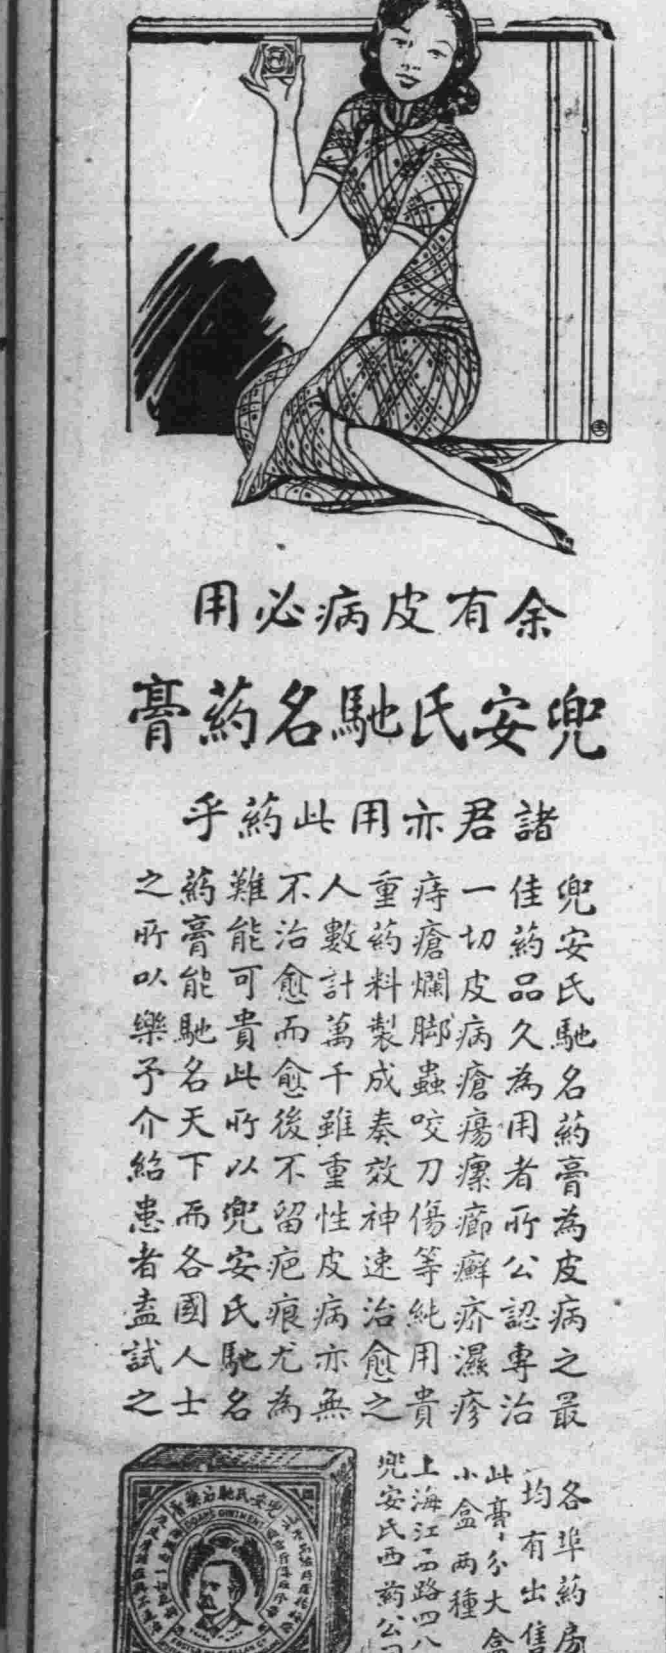 余有皮病必用
兜安氏馳名葯膏
諸君亦用此葯乎
兜安氏馳名葯膏為皮病之最
佳葯品久為用者所公認專治
一切皮病瘡瘍瘰癤癬疥濕疹
痔瘡爛脚蟲咬刀傷等純用貴
重葯料製成奏效神速治愈之
人數計萬千雖重性皮病亦無
不治愈而愈後不留疤痕尤為
難能可貴此所以兜安氏馳名
葯膏能馳名天下而各國人士
之所以樂予介紹患者盍試之
各埠葯房
均有出售
此膏分大盒
小盒兩種
上海江西路四八
兜安氏西葯公司
兜安氏馳名藥膏
DOAN'S OINTMENT
FOSTER McCLELLAN CO